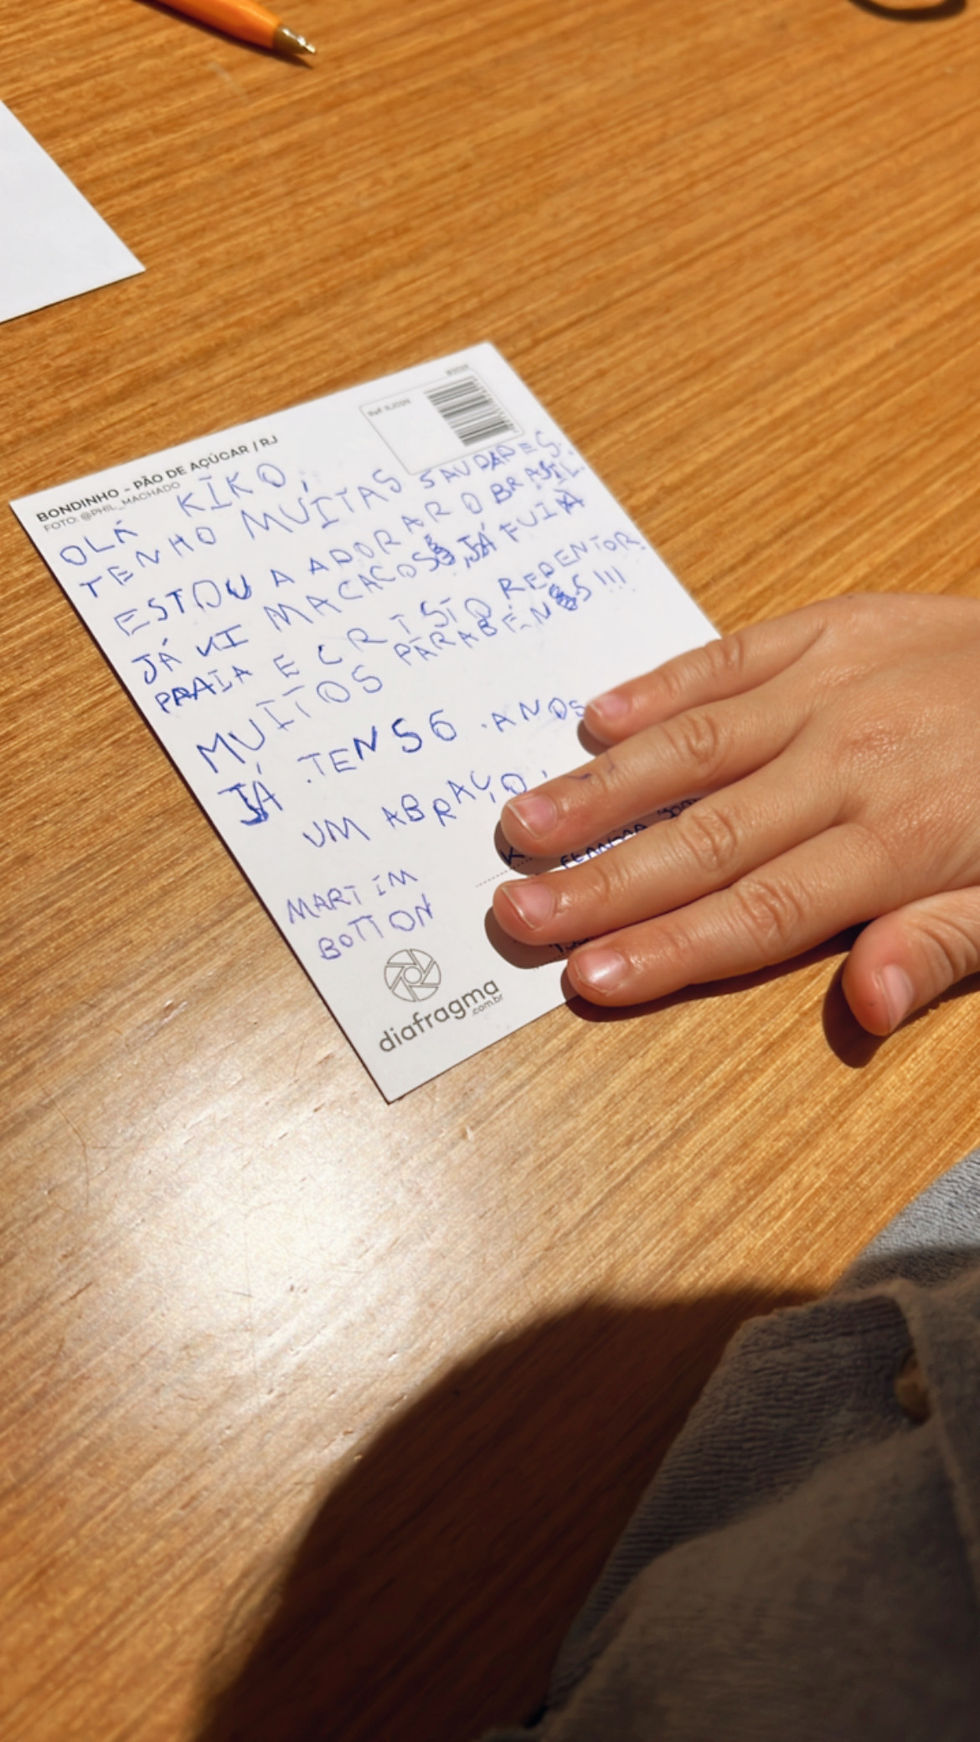 BONDINHO - PÃO DE AÇÚCAR / RJ
FOTO: @PHIL_MACHADO
OLÁ KIKO,
TENHO MUITAS SAUDADES.
ESTOU A ADORAR O BRASIL.
JÁ VI MACACOS, JÁ FUI À
PRAIA E CRISTO REDENTOR.
MUITOS PARABÉNS!!!
JÁ TENS 6 ANOS
UM ABRAÇO,
MARTIM
BOTTON
diafragma
.com.br